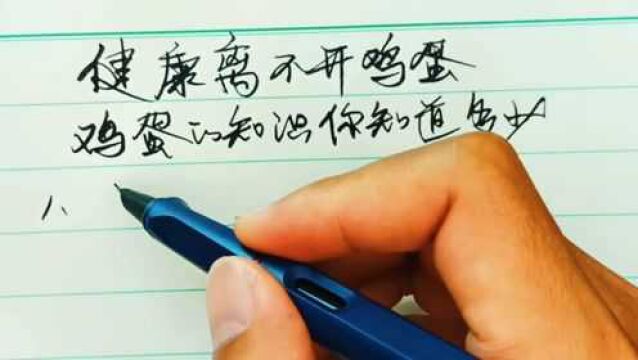 健康离不开鸡蛋
鸡蛋的知识你知道多少